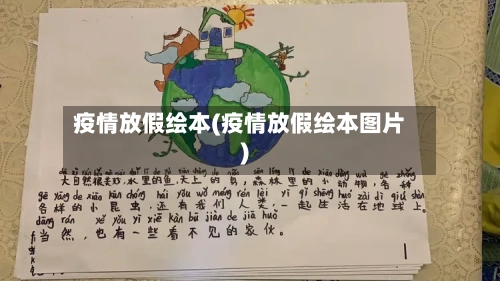 疫情放假绘本(疫情放假绘本图片
)
大自然很美妙,水里的鱼,天上的鸟,森林里的小动物,各种
gè yàng de xiǎo kūn chóng hái yǒu wǒ men rén lèi yì qǐ shēng huó zài dì qiú shàng
各样的小昆虫,还有我们人类,一起生活在地球上。
dāng rán yě yǒu yì xiē kàn bú jiàn de jiā huo
当然,也有一些看不见的家伙。